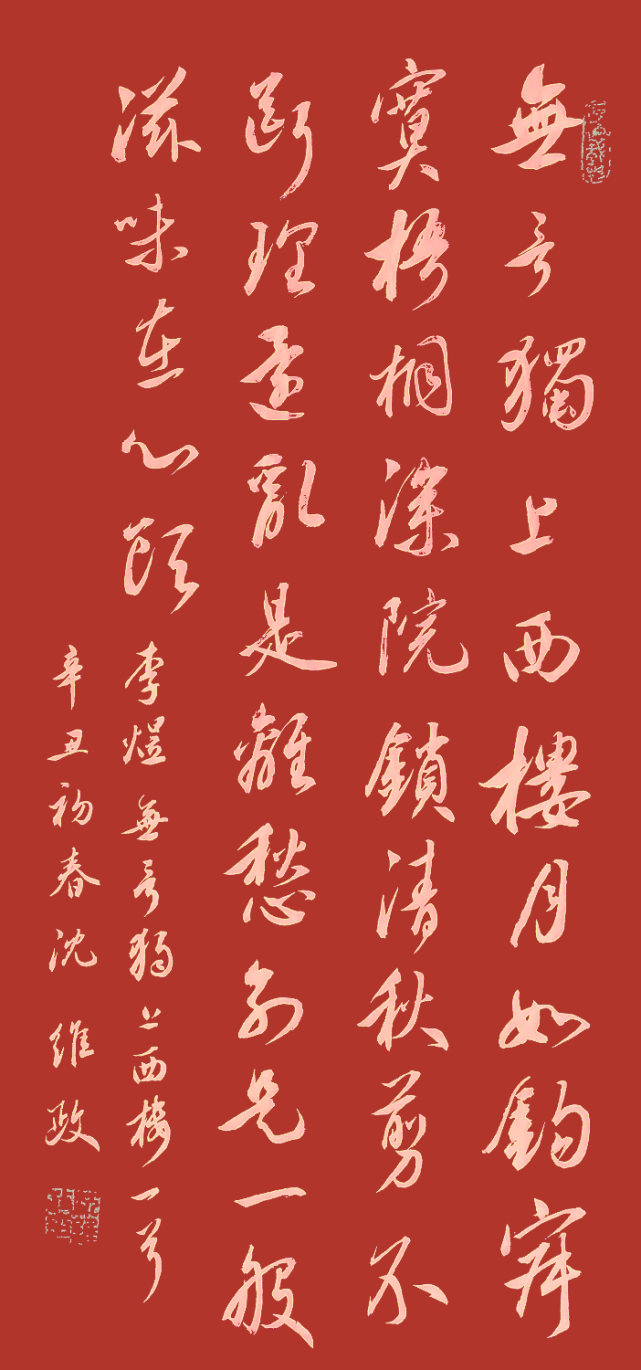 無言獨上西樓月如鈎寂
寞梧桐深院鎖清秋剪不
斷理還亂是離愁別是一般
滋味在心頭
李煜無言獨上西樓一首
辛丑初春沈維政